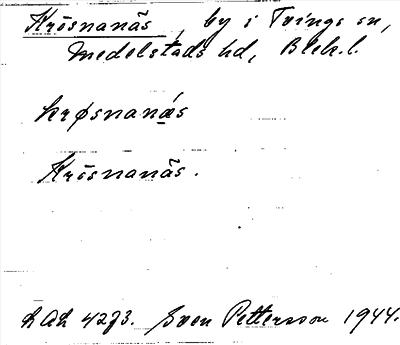 Krösnanäs, by i Tvings sn,
Medelstads hd, Blek. l.
krøsnanæs
Krösnanäs.
LAL 4273. Sven Pettersson 1944.